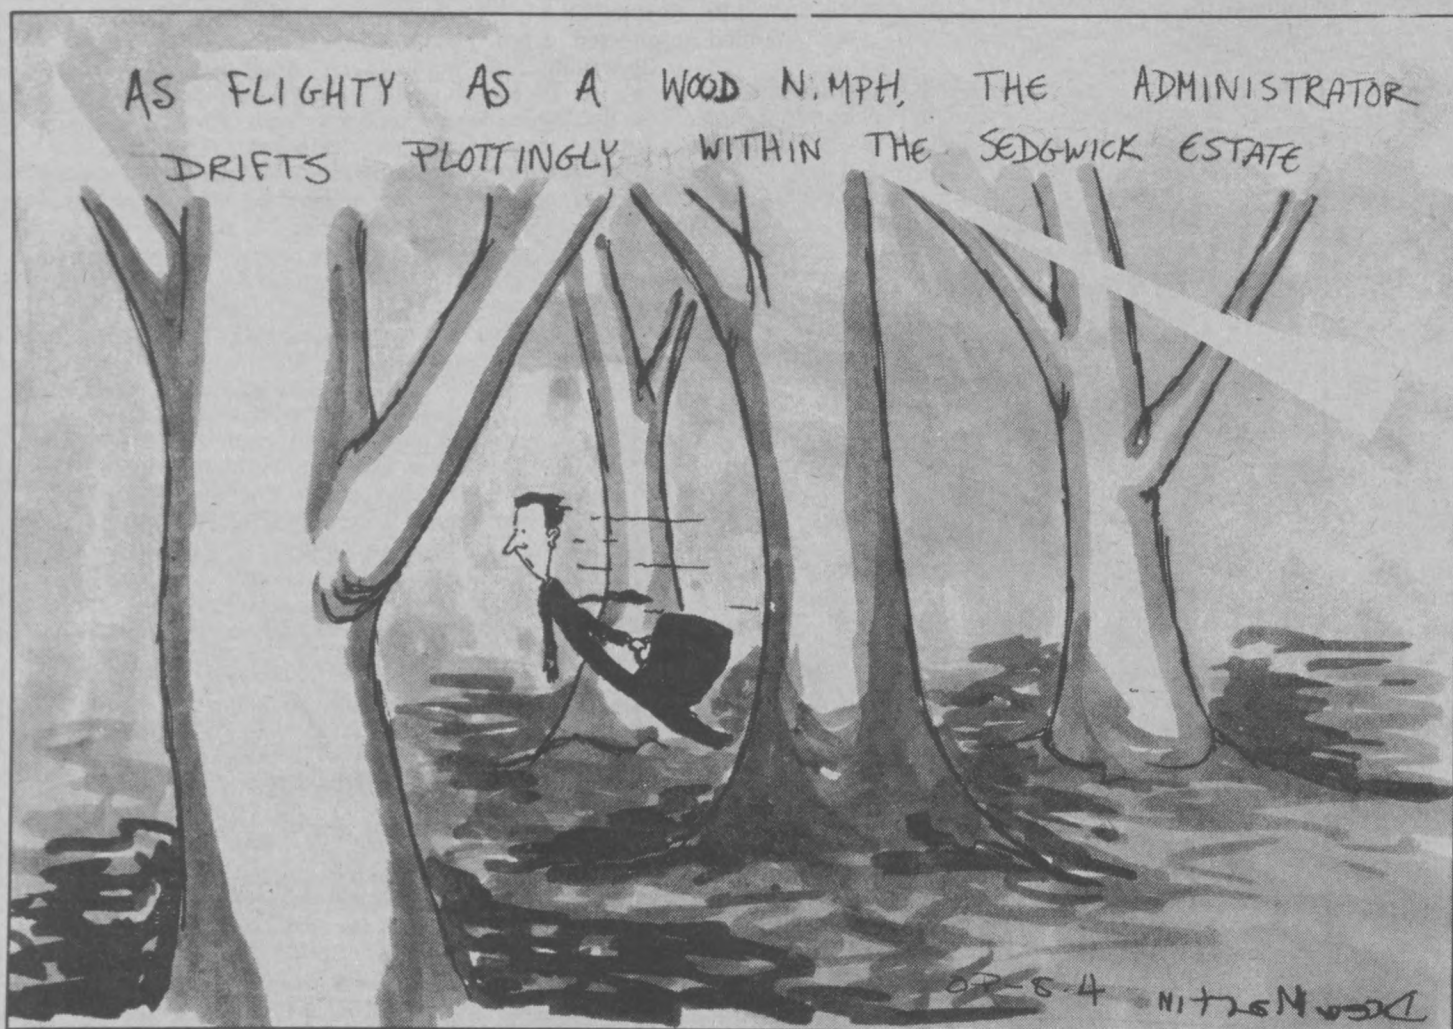 AS FLIGHTY AS A WOOD N.MPH, THE ADMINISTRATOR
DRIFTS PLOTTINGLY WITHIN THE SEDGWICK ESTATE